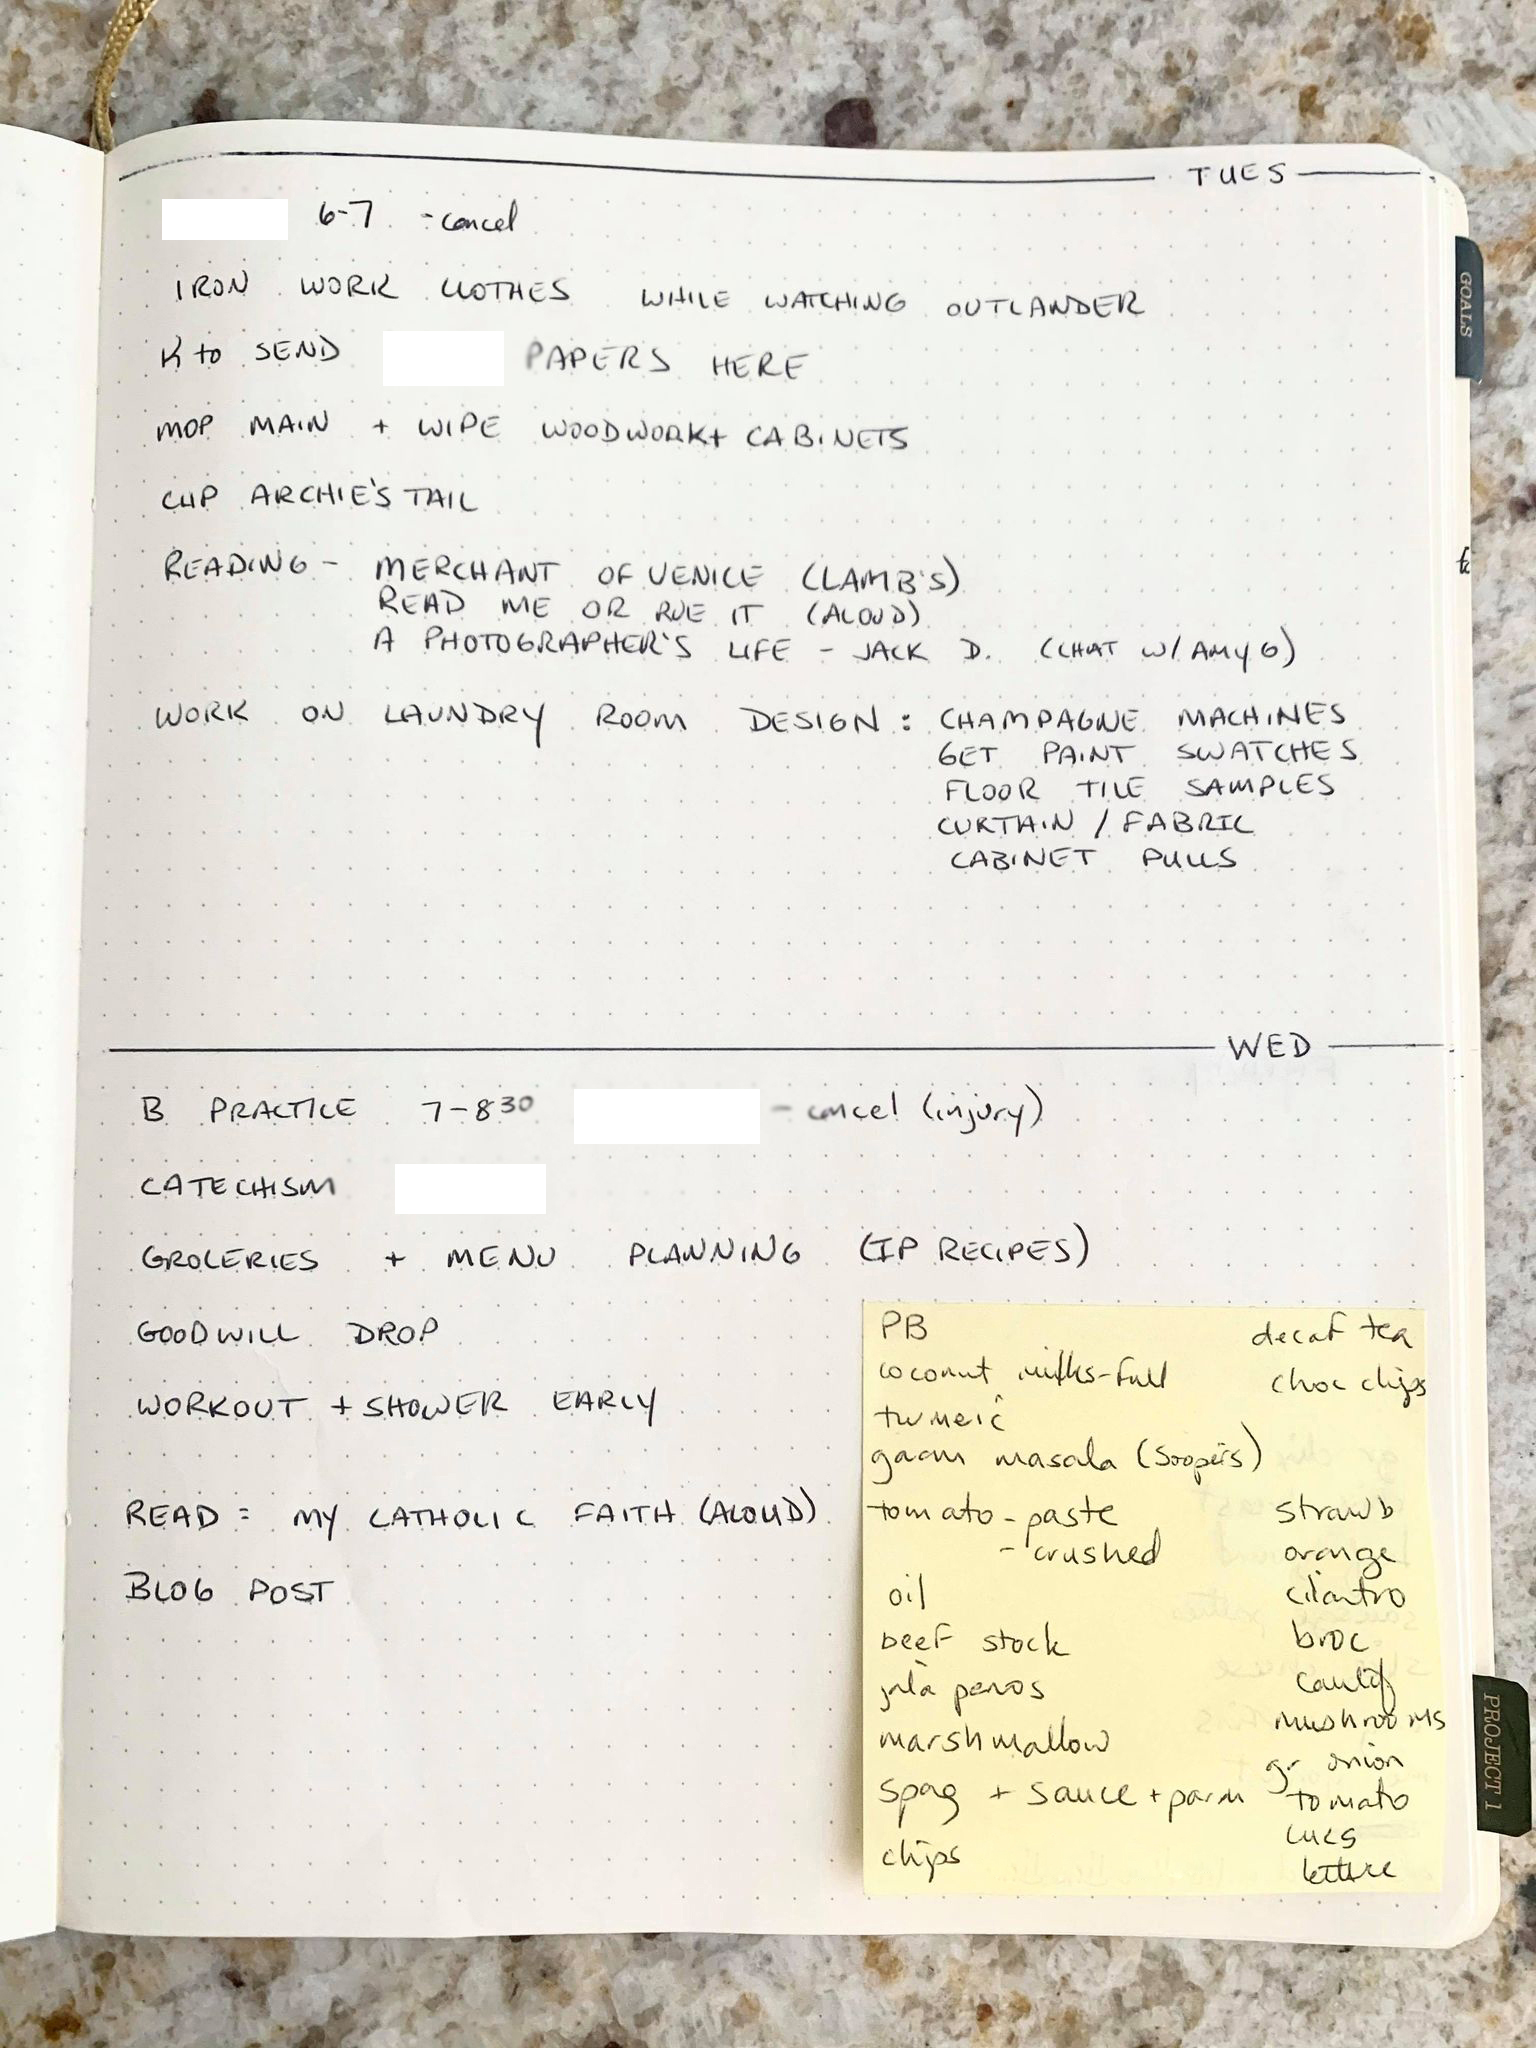 TUES
6-7 - cancel
IRON WORK CLOTHES WHILE WATCHING OUTLANDER
K to SEND PAPERS HERE
MOP MAIN + WIPE WOODWORK + CABINETS
CLIP ARCHIE'S TAIL
READING - MERCHANT OF VENICE (LAMB'S)
READ ME OR RUE IT (ALOUD)
A PHOTOGRAPHER'S LIFE - JACK D. (CHAT W/ AMY G)
WORK ON LAUNDRY ROOM DESIGN: CHAMPAGNE MACHINES
GET PAINT SWATCHES
FLOOR TILE SAMPLES
CURTAIN / FABRIC
CABINET PULLS
WED
B PRACTICE 7-8 30 - cancel (injury)
CATECHISM
GROCERIES + MENU PLANNING (IP RECIPES)
GOODWILL DROP
WORKOUT + SHOWER EARLY
READ: MY CATHOLIC FAITH (ALOUD)
BLOG POST
PB
coconut milks-full
turmeric
garam masala (Soopers)
tomato - paste
- crushed
oil
beef stock
jalapenos
marshmallow
spag + sauce + parm
chips
decaf tea
choc chips
strawb
orange
cilantro
broc
caulif
mushrooms
gr onion
tomato
cucs
lettuce
GOALS
PROJECT 1